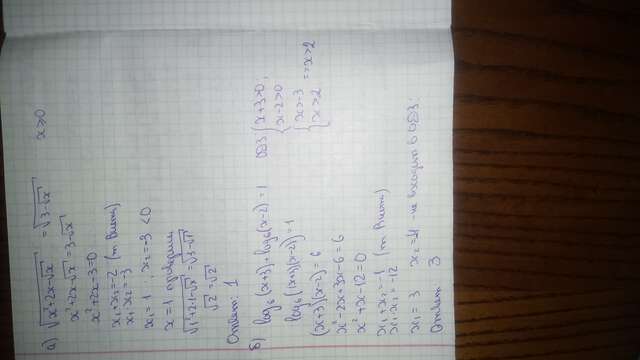 а) √x²+2x-√x = √3-√x x>0
x²+2x-√x = 3-√x
x²+2x-3=0
x₁+x₂=-2 (т. Виета)
x₁·x₂=-3
x₁=1 x₂=-3<0
x=1 проверили
√1²+2·1-√1 = √3-√1
√2=√2
Ответ: 1
б) log₆(x+3)+log₆(x-2)=1 ОДЗ {x+3>0, x-2>0
log₆(x+3)(x-2)=1 {x>-3 x>2 => x>2
(x+3)(x-2)=6
x²-2x+3x-6=6
x²+x-12=0
x₁+x₂=-1 (т. Виета)
x₁·x₂=-12
x₁=3 x₂=-4 - не входит в ОДЗ.
Ответ 3